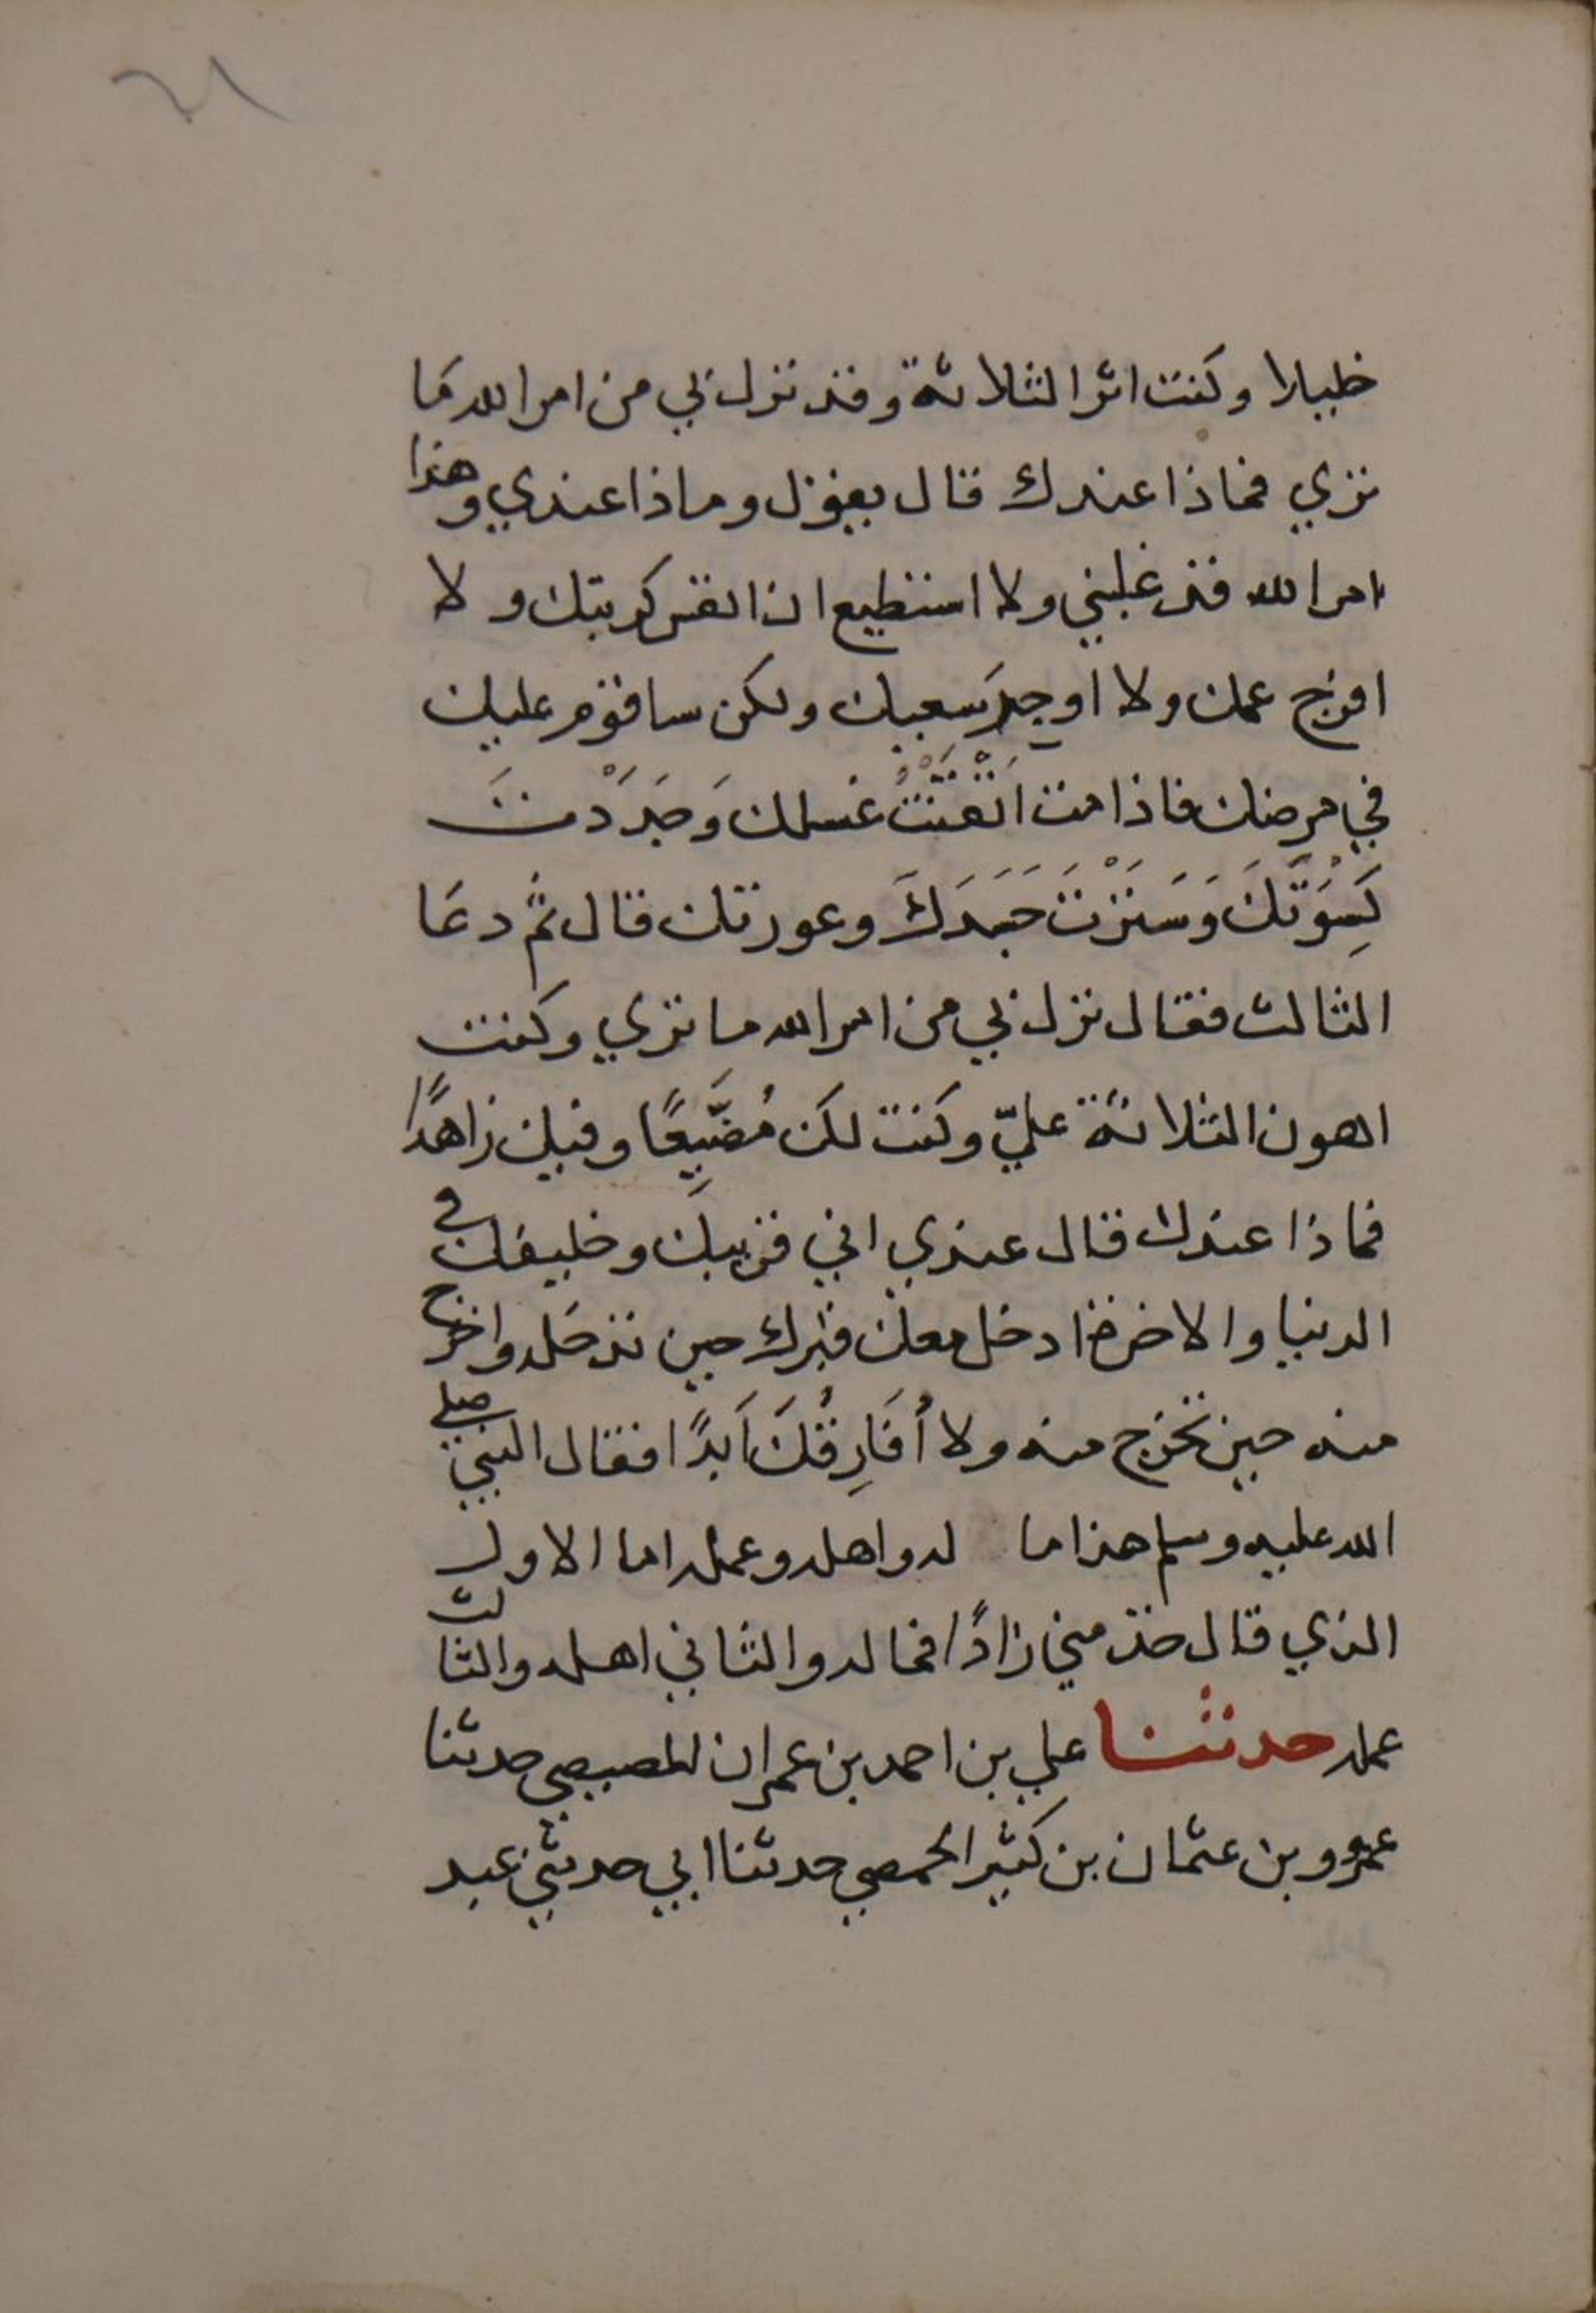 ٢١
خليلا وكنت اثر الثلاثة وقد نزل بي من امر الله ما
تري فماذا عندك قال يقول وماذا عندي وهذا
امر الله قد غلبني ولا استطيع ان انفس كربتك ولا
افرج غمك ولا اوجر سعيك ولكن ساقوم عليك
في مرضك فاذا مت اَتْقَنْتُ غسلك وَجَدَّدْتَ
كِسْوَتَكَ وَسَتَرْتَ جَسَدَكَ وعورتك قال ثُم دعَا
الثالث فقال نزل بي من امر الله ما تري وكنت
اهون الثلاثة عليّ وكنت لك مُضَيِّعًا وفيك زاهدًا
فماذا عندك قال عندي اني قريبك وخليفك في
الدنيا والاخرة ادخل معك قبرك حين تدخله واخرج
منه حين تخرج منه ولا أُفَارِقُكَ اَبَدًا فقال النبي صلي
الله عليه وسلم هذا ما له واهله وعمله اما الاول
الذي قال خذ مني زادًا فماله والثاني اهله والثالث
عمله حدثنا علي بن احمد بن عمران المصيصي حدثنا
عمرو بن عثمان بن كثير الحمصي حدثنا ابي حدثني عبد